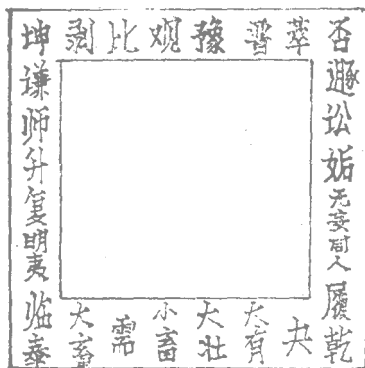 坤剥比观豫晋萃否
谦
师
升
复
明夷
临
泰
遯
讼
姤
无妄
同人
履
乾
大畜
需
小畜
大壮
大有
夬